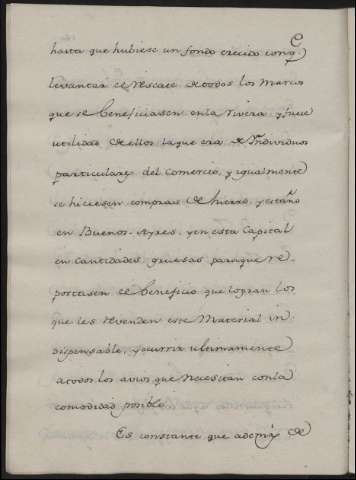 hasta que hubiese un fondo crecido con q.e
levantar el rescate de todos los Marcos
que se beneficiasen en la Rivera y fuese
utilidad de ellos la que era de Individuos
particulares del Comercio, y igualmente
se hiciesen compras de hierro, y estaño
en Buenos-Ayres, y en esta Capital
en cantidades gruesas para que re-
portasen el beneficio que logran los
que les revenden este Material in
dispensable, y ocurrir ultimamente
a todos los avios que necesitan con la
comodidad posible
Es constante que ademas de